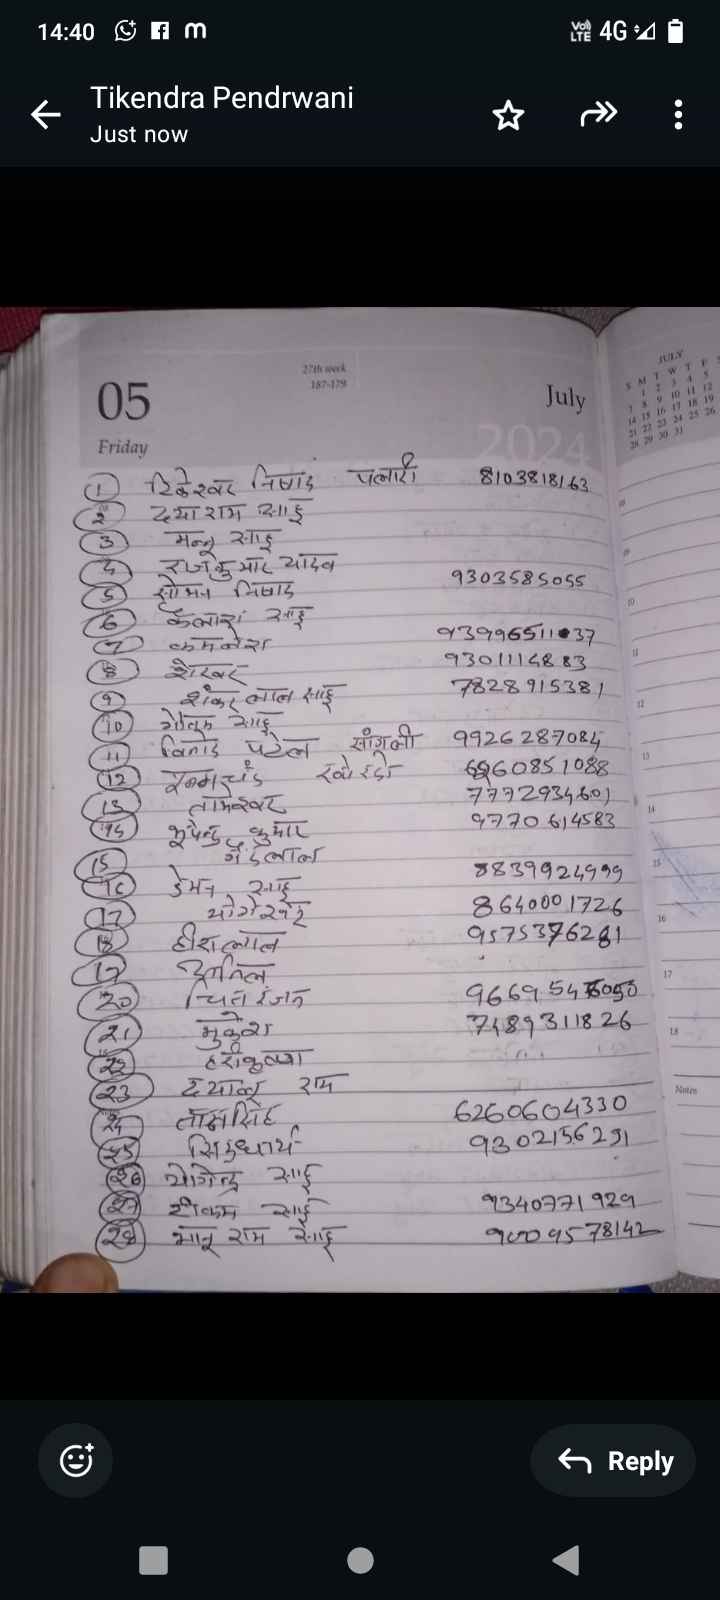 14:40
VoLTE 4G
Tikendra Pendrwani
Just now
27th week
187-179
05 July
Friday 2024
JULY
S M T W T F S
1 2 3 4 5
7 8 9 10 11 12
14 15 16 17 18 19
21 22 23 24 25 26
28 29 30 31
1 निषाद पलारी 8103818163
2 दयाराम साहू
3 मन्नू साहू
4 राजकुमार यादव
5 सोभन निषाद 9303585055
6 कैलाश साहू
7 कमलेश 9399651137
8 शेखर 9301114883
9 शंकर लाल साहू 7828915381
10 साहू
11 विनोद पटेल 9926287084
12 6260851088
13 तामेश्वर 7772934601
14 भूपेन्द्र कुमार 9770614583
15 गेंदलाल
16 डेमन साहू 8839924999
17 8640001726
18 हीरालाल 9575376281
19 अनिल
20 चितरंजन
21 मुकेश 7489311826
22
23 दयालू राम
24 6260604330
25 9302156291
26 योगेन्द्र साहू
27 टीकम साहू 9340771929
28 भानू राम साहू
10
11
12
13
14
15
16
17
18
Notes
Reply